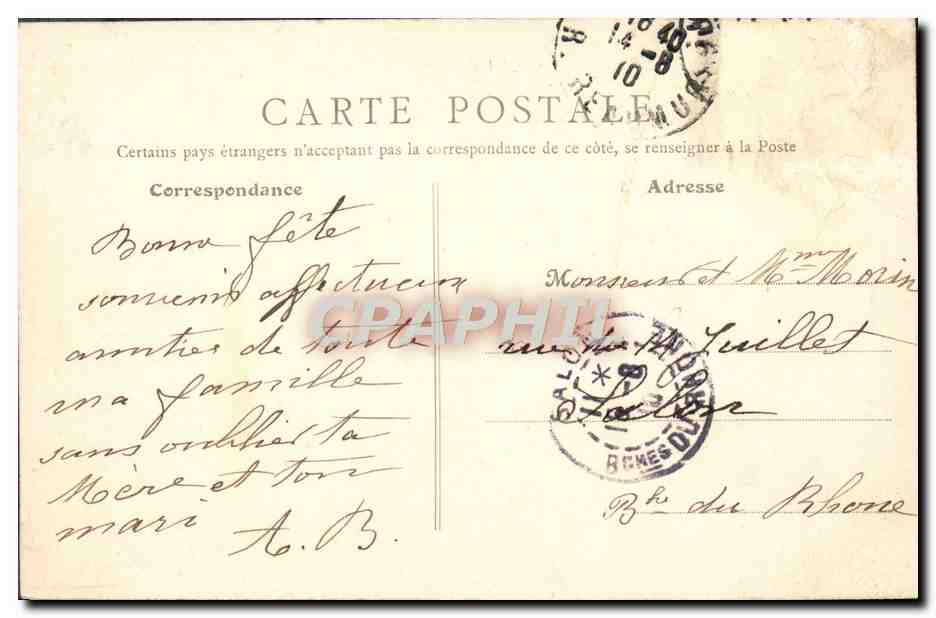 18 40
14 -8
10
R. REAUMUR
CARTE POSTALE
Certains pays étrangers n'acceptant pas la correspondance de ce côté, se renseigner à la Poste
Correspondance
Adresse
Bonne fête
souvenir affectueux
amitiés de toute
ma famille
sans oublier ta
Mère et ton
mari
A. B.
Monsieur et Mme Morin
rue du 14 Juillet
Salon
Bhe du Rhone
SALON
-8
10
BCHES DU RHONE
CPAPHIL